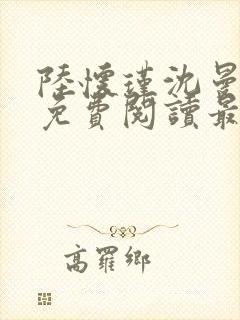 陸懷瑾沈曼
免費閱讀最
高羅鄉